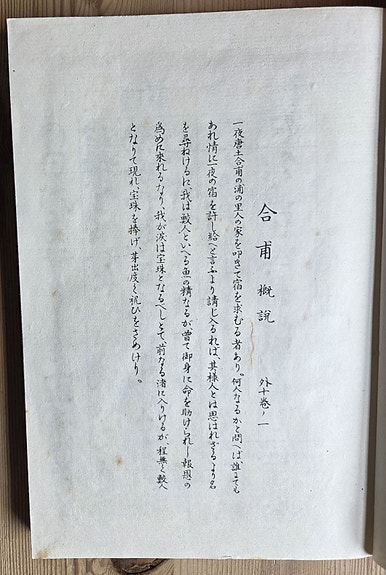 合甫概説　外十巻ノ一
一夜唐土合甫の浦の里人の家を叩きて宿を求むる者あり。何人なるかと問へば誰にても
あれ情に一夜の宿を許し給へと言ふより請じ入るれば、其様人とは思はれざるより名
を尋ねけるに我は鮫人といへる魚の精なるが曽て御身に命を助けられし報恩の
為めに来れるなり、我が涙は宝珠となるべしとて前なる渚に入りけるが、程無く鮫人
となりて現れ、宝珠を捧げ、芽出度く祝ひをさめけり。